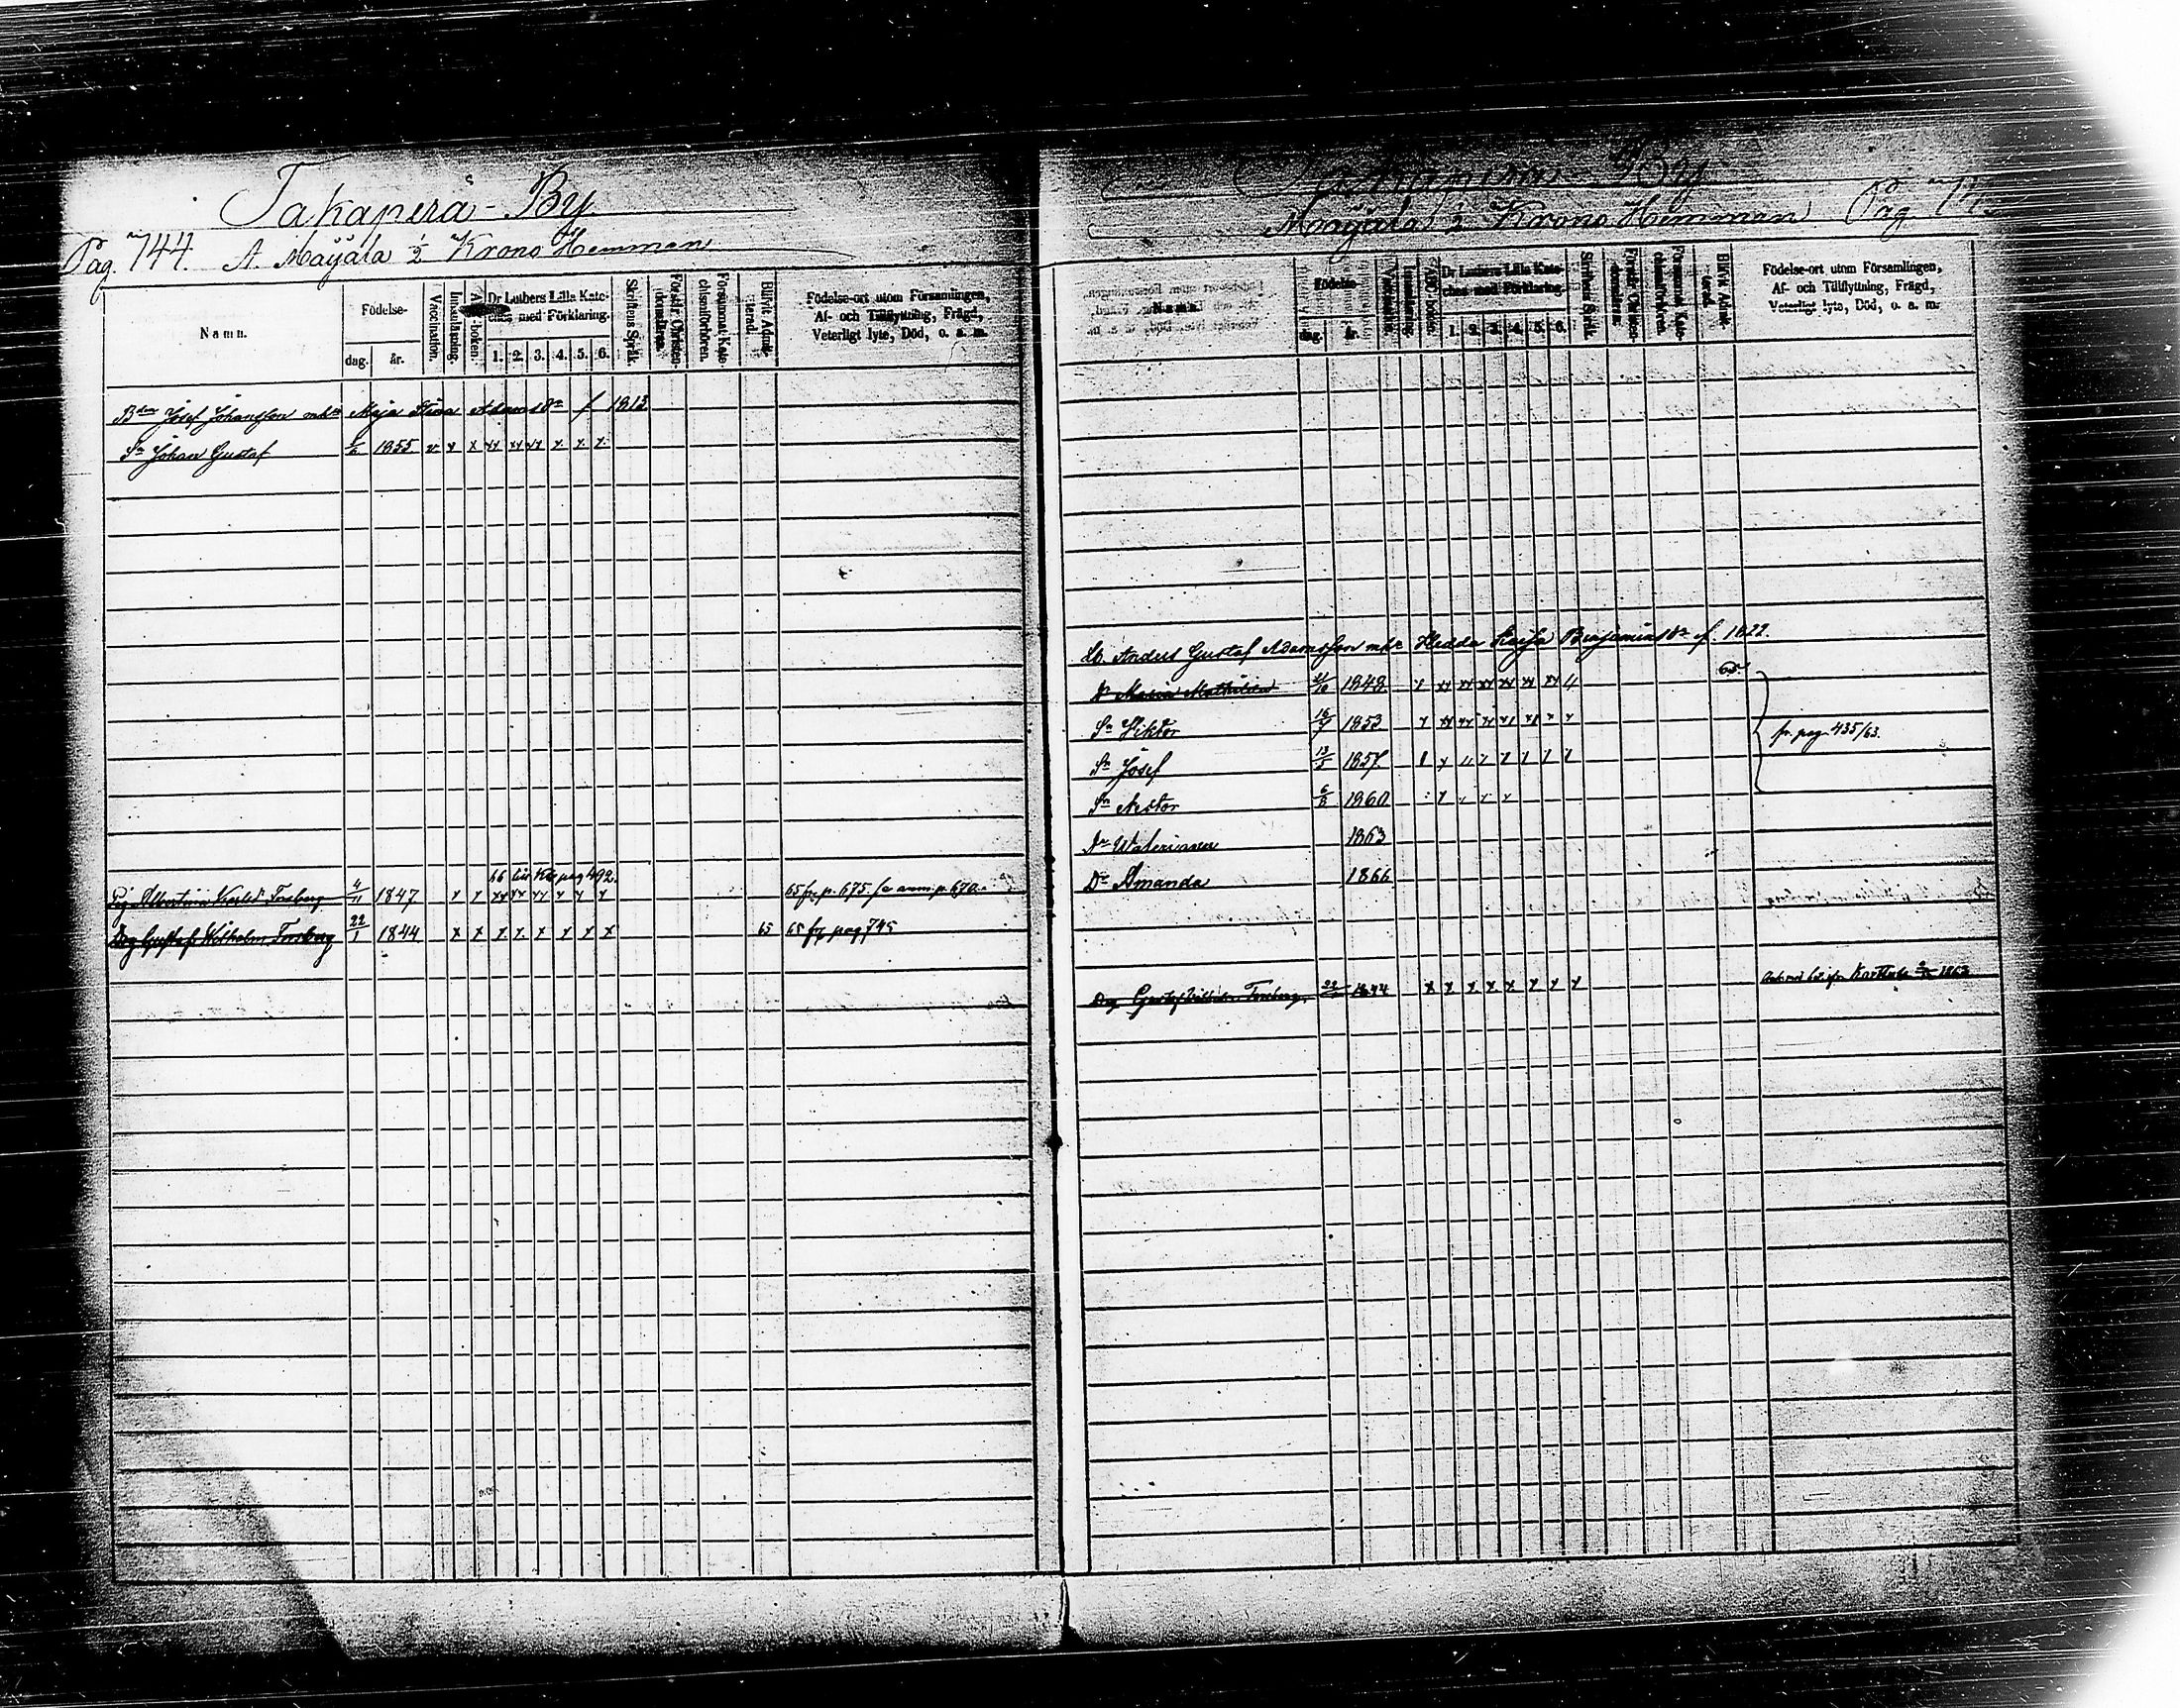 Takaperä - By.
Pag. 744. A. Mäyälä 1/2 Krono Hemman
Namn.
Födelse-
dag. år.
Vaccination.
Innanläsning.
-boken.
Dr Luthers Lilla Kate-
ches med Förklaring.
1. 2. 3. 4. 5. 6.
Skriftens Språk.
Förstår Christen-
domslära.
Försummat Kate-
chismiförhören.
Blifvit Admit-
terad.
Födelse-ort utom Församlingen,
Af- och Tillflyttning, Frägd,
Veterligt lyte, Död, o. a. m.
Bdn Josef Johansson Maja Stina Adamsdr f 1813
Sn Johan Gustaf 1855 v x x xx xx xx x x x
66 pag 492.
Pig Albertina Forsberg 4/11 1847 x x xx xx xx x x x 65 fr. p. 675. p. 670
Drg Gustaf Wilhelm Forsberg 22/1 1844 x x x x x x x x 65 65 fr pag 745
Takaperä By
Mäyälä 1/2 Krono Hemman Pag.
Namn.
Födelse-
dag. år.
ABC-boken.
Dr Luthers Lilla Kate-
ches med Förklaring.
1. 2. 3. 4. 5. 6.
Skriftens Språk.
Förstår Christen-
domslära.
Försummat Kate-
chismiförhören.
Blifvit Admit-
terad.
Födelse-ort utom Församlingen,
Af- och Tillflyttning, Frägd,
Veterligt lyte, Död, o. a. m.
Anders Gustaf Adamsson Hedda Kajsa Benjaminsdr f. 1822.
Dr Maria 1848 x xx xx xx xx xx xx 65
Sn Viktor 1853 x xx xx xx x x x x
fr. pag. 435/63.
Sn Josef 13/5 1857
Sn Nestor 6/8 1860
Dr 1863
Dr Amanda 1866
Drg Gustaf Wilhelm Forsberg 1844 x x x x x x x x Karttula 1863